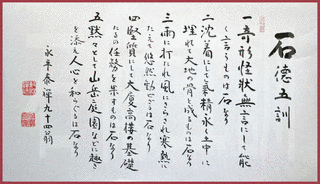 石徳五訓
一、奇形怪状無言にして能
く言うものは石なり
二、沈着にして気精永く土中に
埋れて大地の骨と成るものは石なり
三、雨に打たれ風にさらされ寒熱に
たえて悠然動ぜざるは石なり
四、堅質にして大厦高楼の基礎
たるの任務を果すものは石なり
五、黙々として山岳庭園などに趣き
を添え人心を和らぐるは石なり
永平泰禅九十四翁